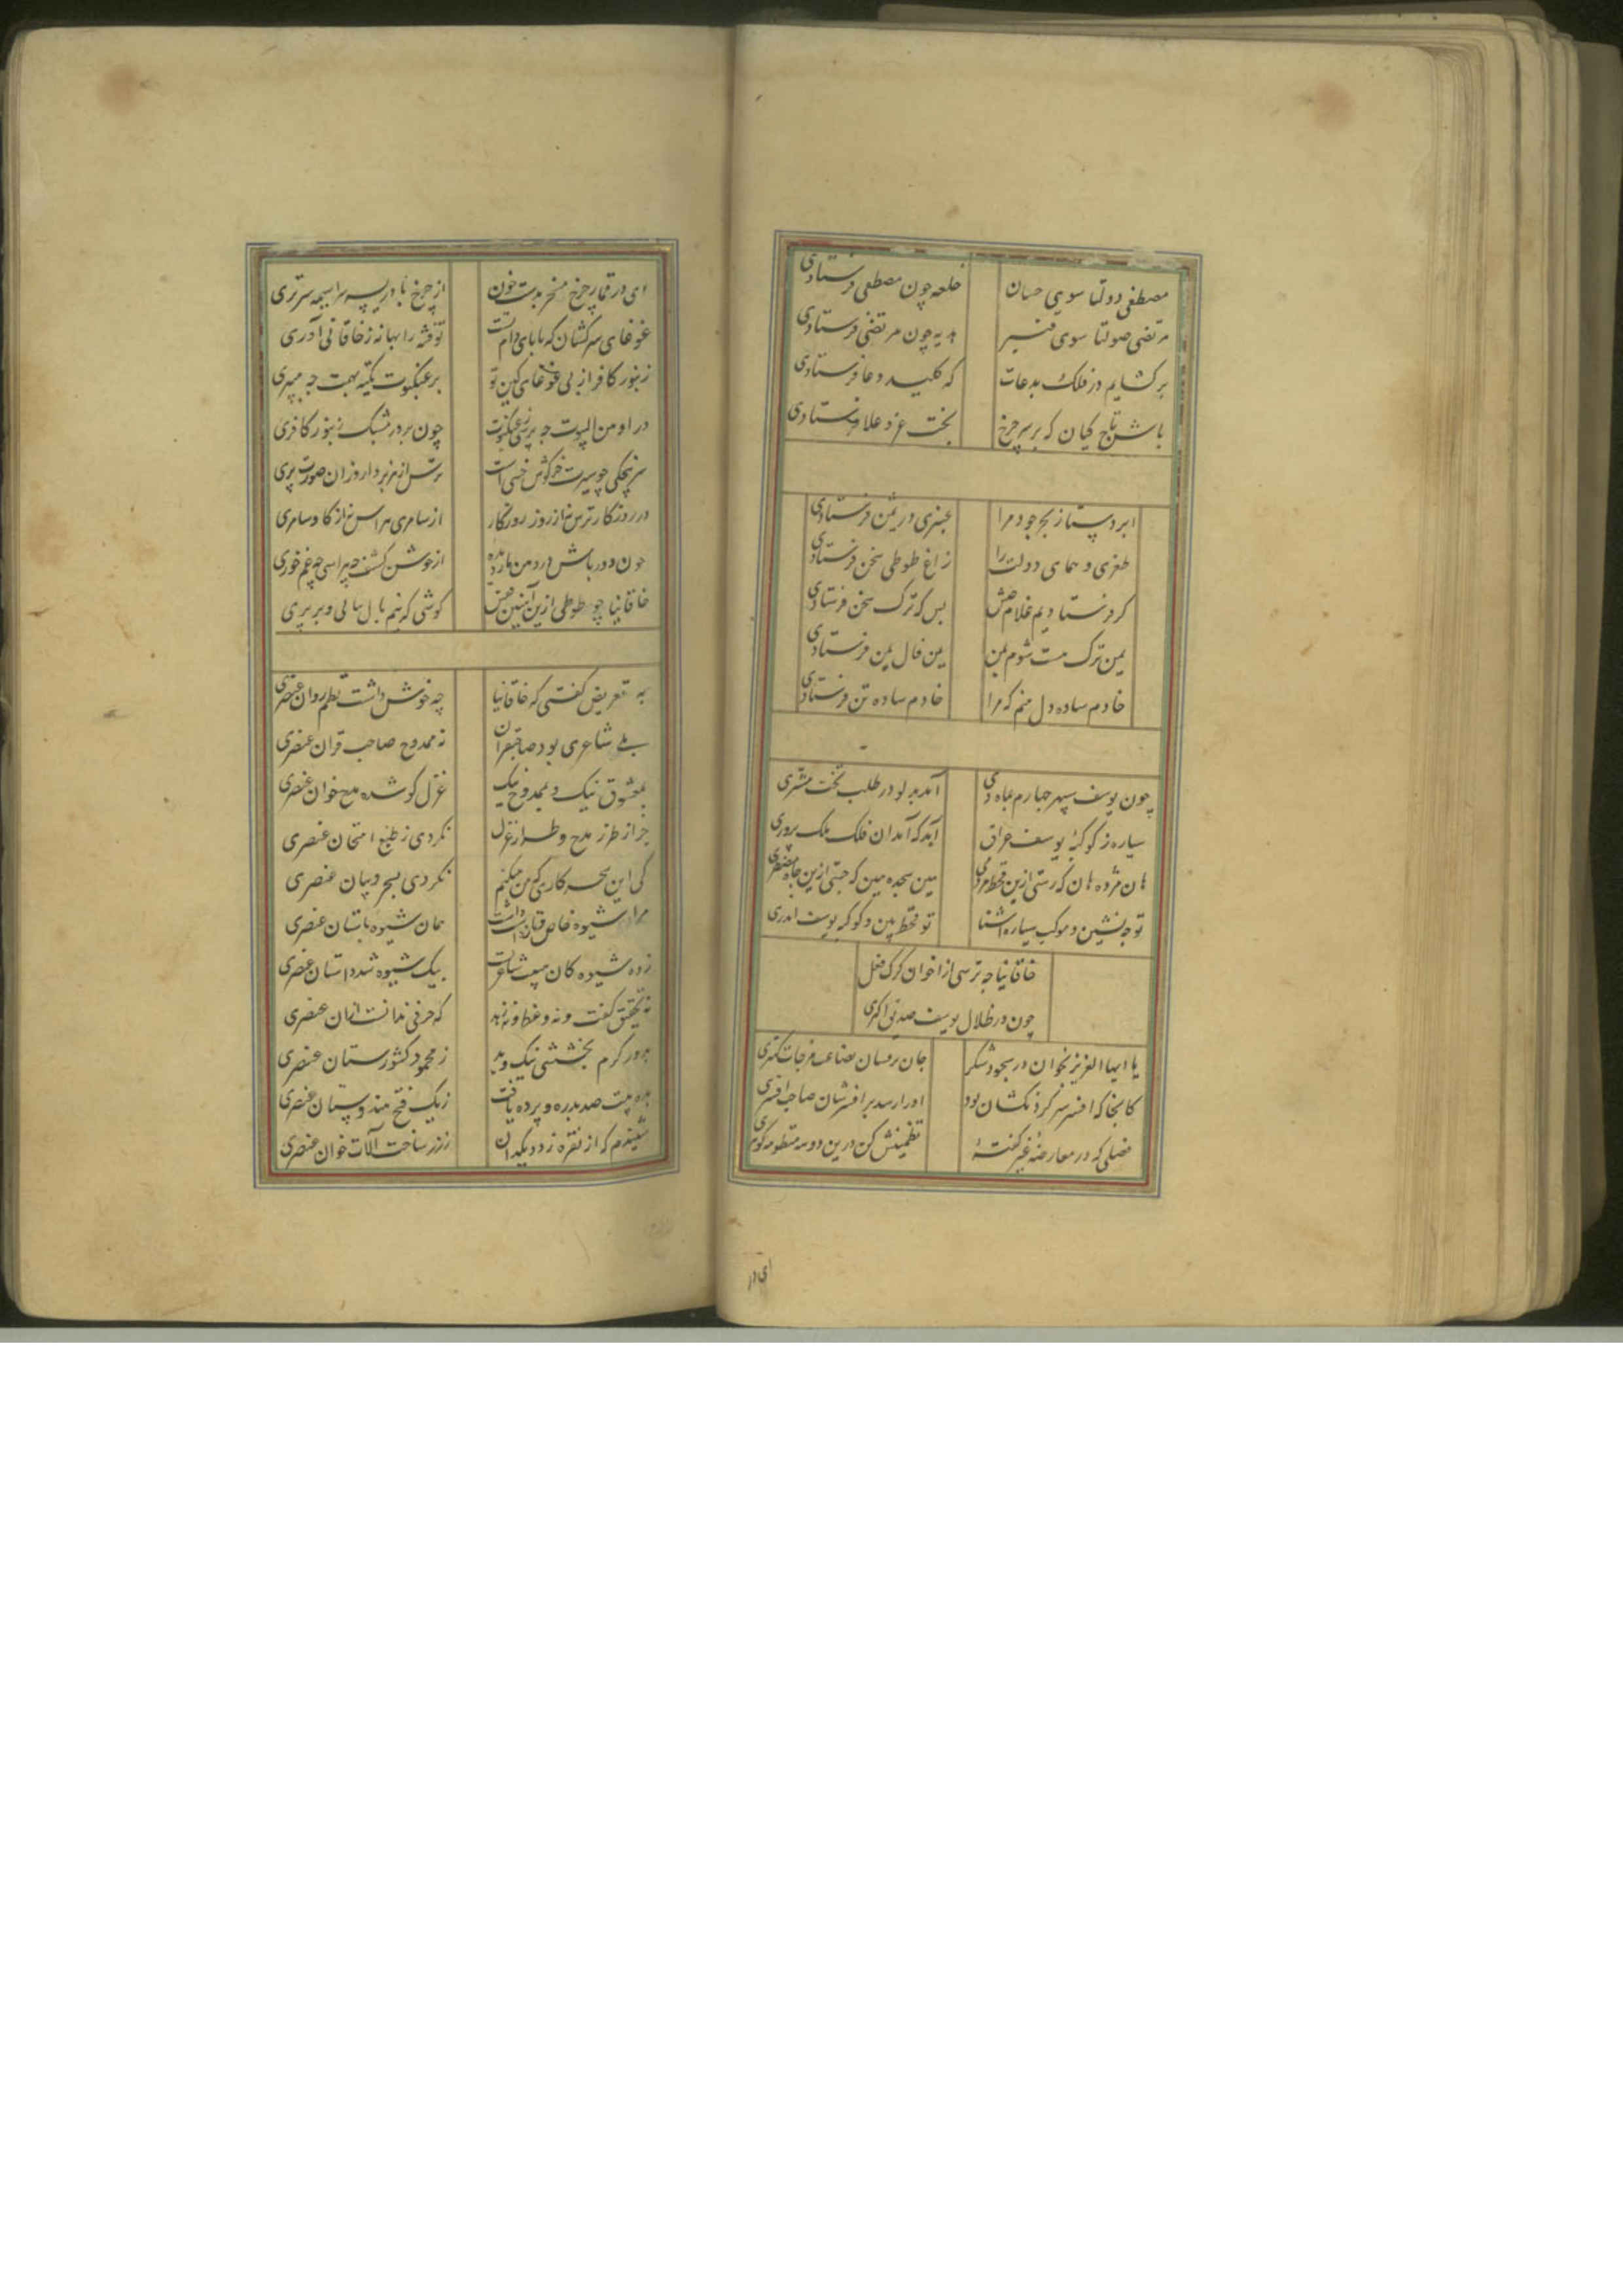 مصطفی دولتا سوی حسان
خلعه چون مصطفی فرستادی
مرتضی صولتا سوی قنبر
هدیه چون مرتضی فرستادی
برکشایم در فلک بدعات
که کلید دعا فرستادی
باش تاج کیان که بر سر چرخ
بخت عز و علا فرستادی
ابر دستا ز بحر جود مرا
عنبری در ثمن فرستادی
طغری و همای دولت را
زاغ طوطی سخن فرستادی
کر فرستادیم غلام حبش
بس که ترک سخن فرستادی
یمن ترک مست شوم بمن
یمن فال یمن فرستادی
خادم ساده دل منم که مرا
خادم ساده تن فرستادی
چون یوسف سپهر چهارم بماه دی
آمد بدلو در طلب تخت مشتری
سیاره ز کوکبهٔ یوسف عراق
آمد که آمد ان فلک ملک پروری
هان مژده هان که رستی ازین قحط مردمی
هین سجده هین که جستی ازین چاه مضطری
تو چه نشین و موکب سیاره اشنا
تو قحط بین و کوکبه یوسف ایدری
خاقانیا چه ترسی از اخوان کرک فعل
چون در ظلال یوسف صدیق اکبری
یا ایها العزیز بخوان در سجود شکر
جان برفشان بضاعت مزجات کمتری
کانجا که افسر سر کردنکشان بود
اورا رسد بر افسرشان صاحب افسری
فصلی که در معارضهٔ غیر کفتهٔ
تضمینش کن درین دو سه منظومه کوهری
ای در
ای در قمار چرخ مسخر بدست خون
از چرخ بادریسه سراسیمه سرتری
غوغای سرکشان که بابای دام تست
تو فتنه را بهانه ز خاقانی آوری
زنبور کافر از پی غوغای کین تو
بر عنکبوت تکیه بهت چه میبری
در اومن البیوت چه پری چو عنکبوت
چون بر در مشبک زنبور کافری
سرپنجکی چو سیرت خرکوش خسی است
ترس از هزبر دار و زان صورت بری
در روزکار ترس نه از روز روزکار
از سامری هراس نه از کاو سامری
چون دورباش در دهن مار دیدهٔ
از جوشن کشف چه هراسی چه غم خوری
خاقانیا چو طوطی ازین آهنین قفس
کوشی که نیم بال بیابی و بر پری
به تعریض کفتی که خاقانیا
چه خوش داشت نظم روان عنصری
بلی شاعری بود صاحبقران
ز ممدوح صاحب قران عنصری
بمعشوق نیک و بممدوح نیک
غزل کو شد و مدح خوان عنصری
جز از طرز مدح و طراز غزل
نکردی ز طبع امتحان عنصری
کی این سحر کاری که من میکنم
نکردی بسحر و بیان عنصری
مرا شیوه خاص و تازه است و داشت
همان شیوه باستان عنصری
ز ده شیوه کان حیلت شاعریست
بیک شیوه شد داستان عنصری
نه تحقیق کفت و نه وعظ و نه زهد
که حرفی ندانست ازان عنصری
بدور کرم بخششی نیک دید
ز محمود کشورستان عنصری
بده بیت صد بدره و برده یافت
ز یک فتح هندوستان عنصری
شنیدم که از نقره زد دیکدان
ز زر ساخت آلات خوان عنصری